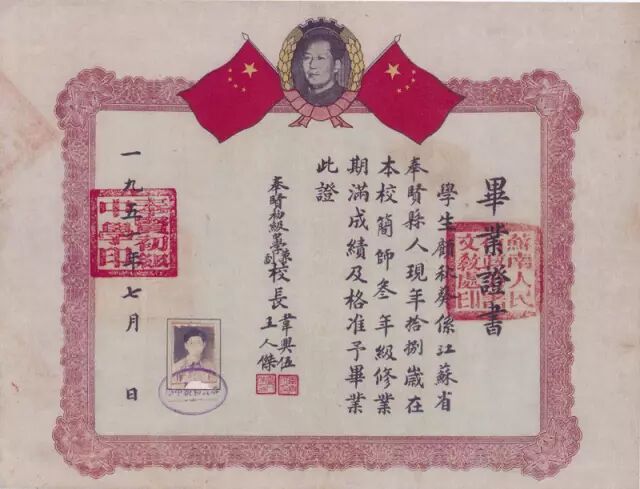 畢業證書
學生顧秋葵係江蘇省
奉賢縣人現年拾捌歲在
本校簡師叁年級修業
期滿成績及格准予畢業
此證
奉賢初級中學
兼
副
校長
韋興伍
王人傑
一九五一年七月 日
奉賢初級
中學印
蘇南人民
文教處印